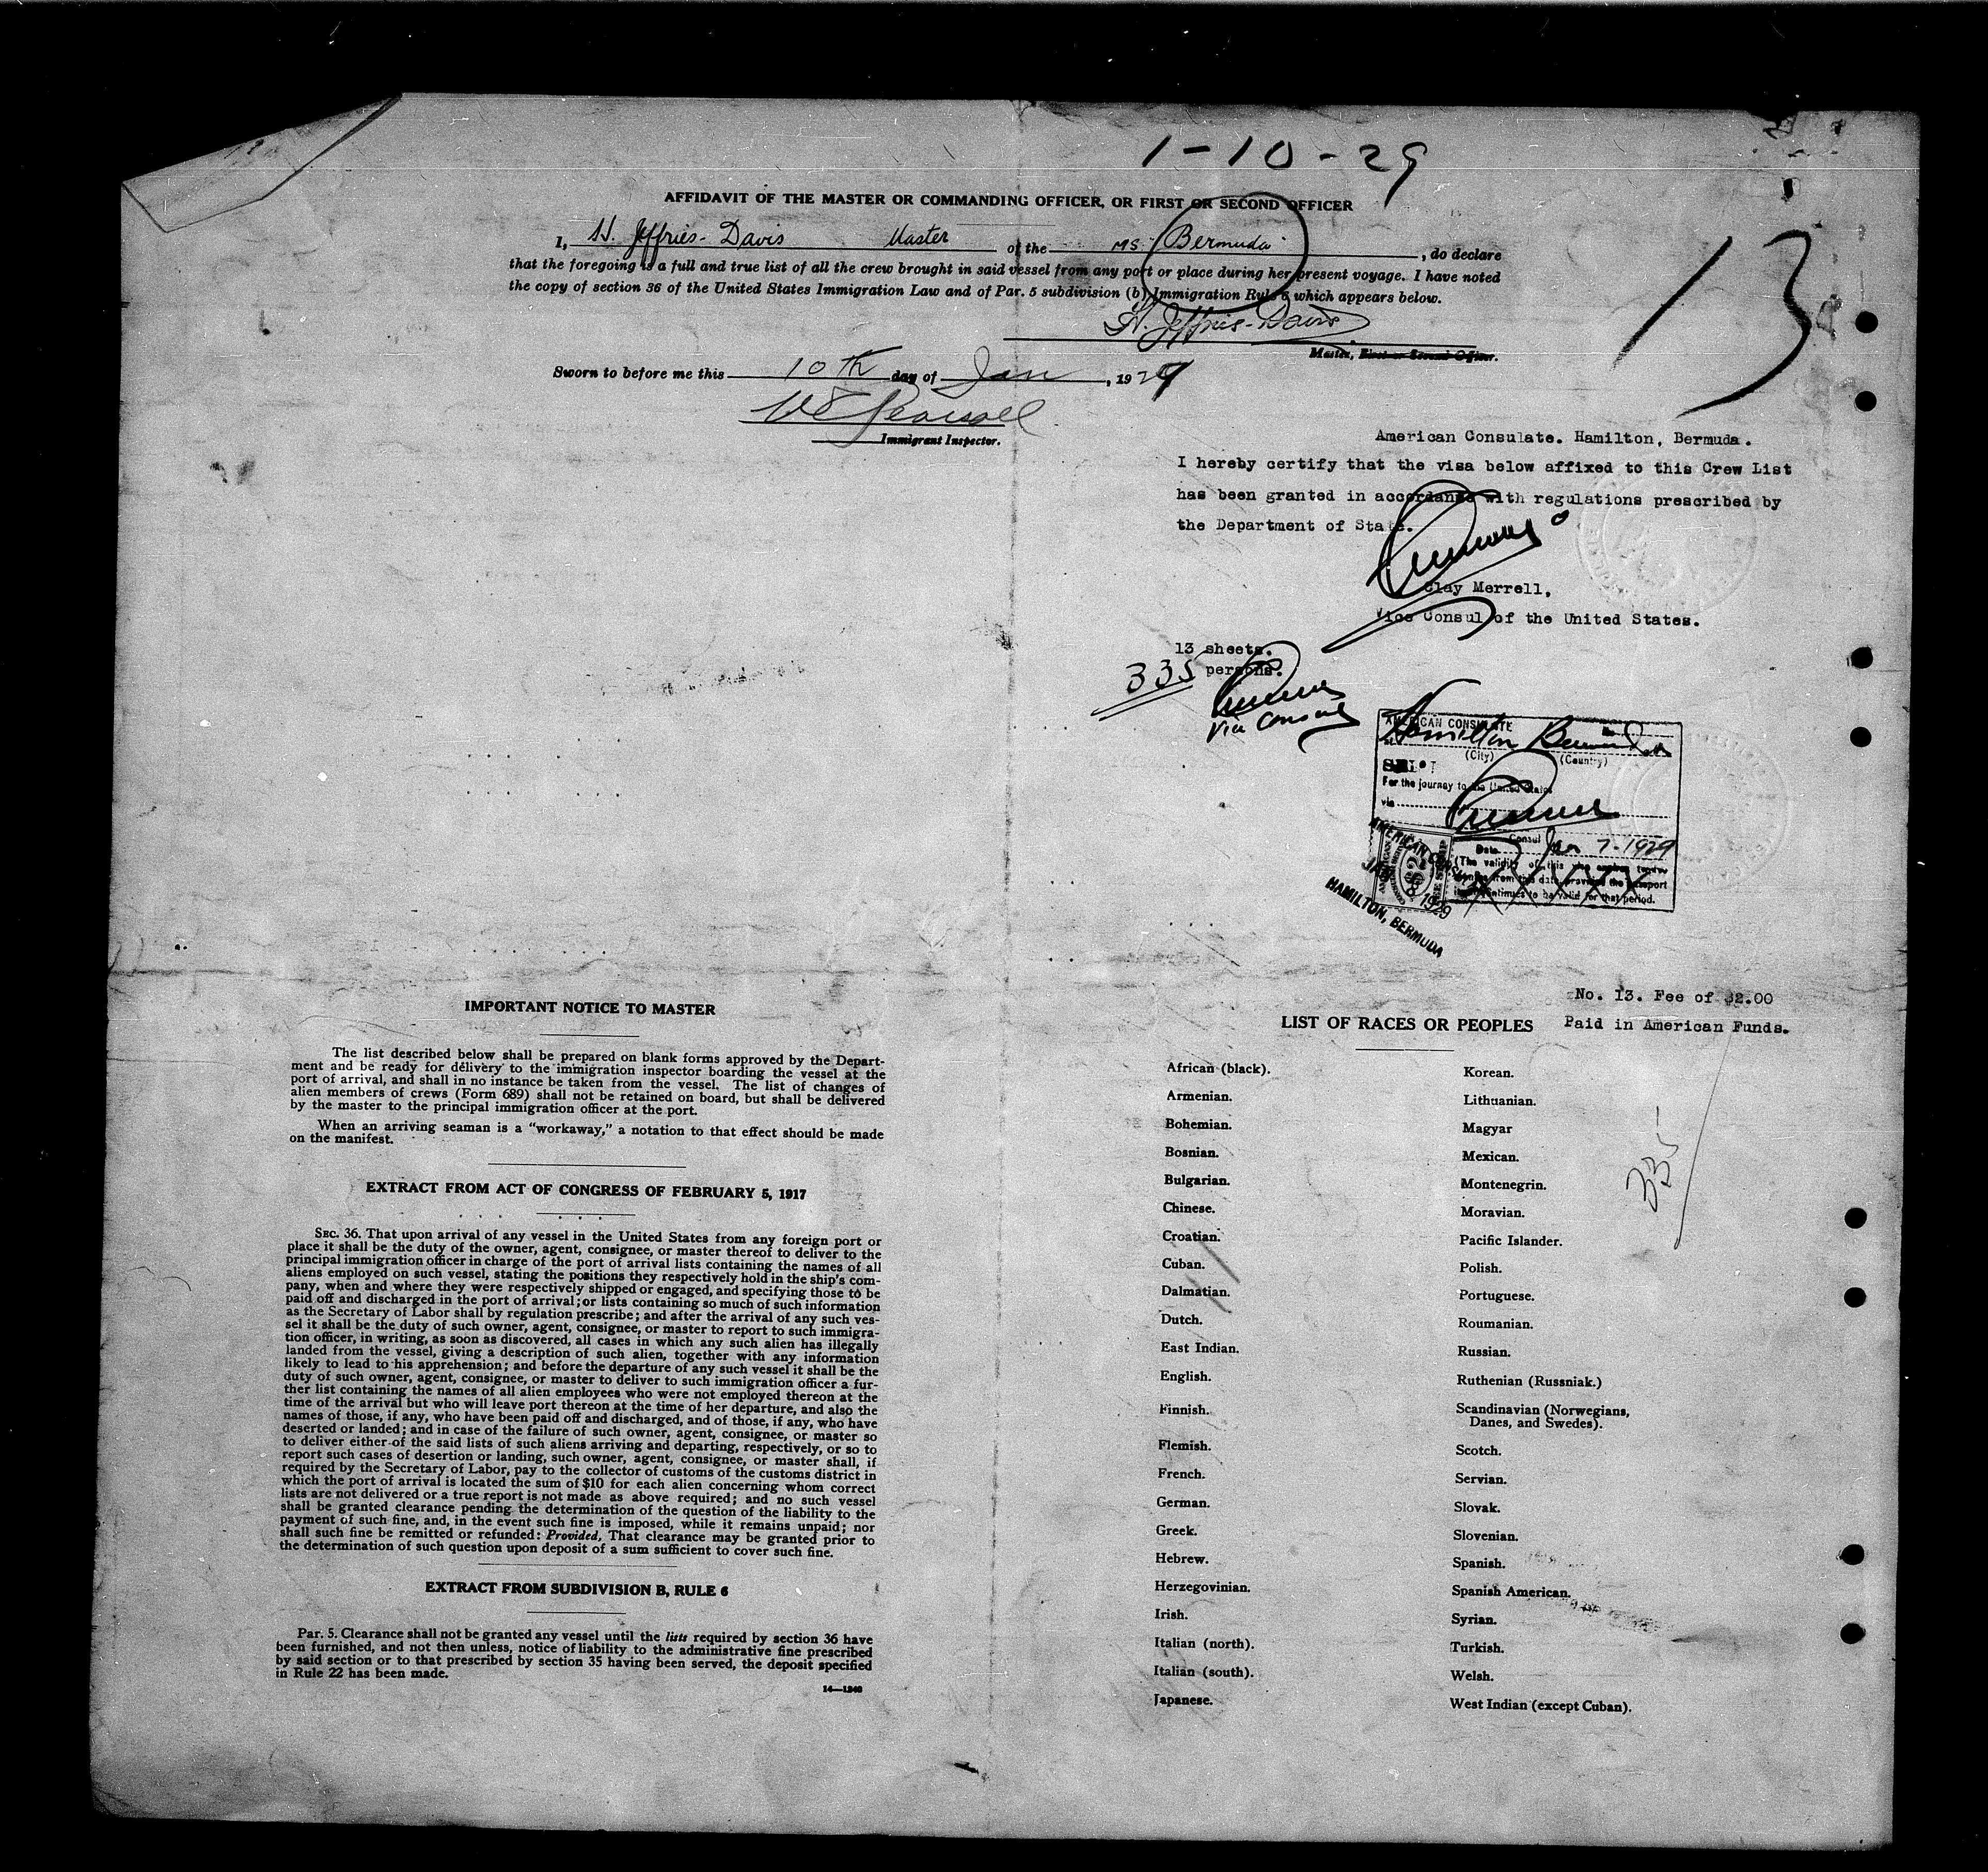 1-10-29
AFFIDAVIT OF THE MASTER OR COMMANDING OFFICER, OR FIRST OR SECOND OFFICER
I, H. Jeffries-Davis Master of the MS "Bermuda", do declare
that the foregoing is a full and true list of all the crew brought in said vessel from any port or place during her present voyage. I have noted
the copy of section 36 of the United States Immigration Law and of Par. 5 subdivision (b) Immigration Rule 6 which appears below.
H. Jeffries-Davis
Master, First or Second Officer.
13
Sworn to before me this 10th day of Jan, 1929
Immigrant Inspector.
American Consulate. Hamilton, Bermuda.
I hereby certify that the visa below affixed to this Crew List
has been granted in accordance with regulations prescribed by
the Department of State.
Clay Merrell,
Vice Consul of the United States.
13 sheets.
335 persons.
Vice Consul
AMERICAN CONSULATE
at Hamilton Bermuda
(City) (Country)
For the journey to the United States
via
Consul
Date Jan 7-1929
(The validity of this visa expires twelve
months from this date provided the passport
continues to be valid for that period.
AMERICAN CONSULATE
JAN 1929
HAMILTON, BERMUDA
$2
FEE STAMP
No. 13. Fee of $2.00
Paid in American Funds.
IMPORTANT NOTICE TO MASTER
The list described below shall be prepared on blank forms approved by the Depart-
ment and be ready for delivery to the immigration inspector boarding the vessel at the
port of arrival, and shall in no instance be taken from the vessel. The list of changes of
alien members of crews (Form 689) shall not be retained on board, but shall be delivered
by the master to the principal immigration officer at the port.
When an arriving seaman is a "workaway," a notation to that effect should be made
on the manifest.
EXTRACT FROM ACT OF CONGRESS OF FEBRUARY 5, 1917
SEC. 36. That upon arrival of any vessel in the United States from any foreign port or
place it shall be the duty of the owner, agent, consignee, or master thereof to deliver to the
principal immigration officer in charge of the port of arrival lists containing the names of all
aliens employed on such vessel, stating the positions they respectively hold in the ship's com-
pany, when and where they were respectively shipped or engaged, and specifying those to be
paid off and discharged in the port of arrival; or lists containing so much of such information
as the Secretary of Labor shall by regulation prescribe; and after the arrival of any such ves-
sel it shall be the duty of such owner, agent, consignee, or master to report to such immigra-
tion officer, in writing, as soon as discovered, all cases in which any such alien has illegally
landed from the vessel, giving a description of such alien, together with any information
likely to lead to his apprehension; and before the departure of any such vessel it shall be the
duty of such owner, agent, consignee, or master to deliver to such immigration officer a fur-
ther list containing the names of all alien employees who were not employed thereon at the
time of the arrival but who will leave port thereon at the time of her departure, and also the
names of those, if any, who have been paid off and discharged, and of those, if any, who have
deserted or landed; and in case of the failure of such owner, agent, consignee, or master so
to deliver either of the said lists of such aliens arriving and departing, respectively, or so to
report such cases of desertion or landing, such owner, agent, consignee, or master shall, if
required by the Secretary of Labor, pay to the collector of customs of the customs district in
which the port of arrival is located the sum of $10 for each alien concerning whom correct
lists are not delivered or a true report is not made as above required; and no such vessel
shall be granted clearance pending the determination of the question of the liability to the
payment of such fine, and, in the event such fine is imposed, while it remains unpaid; nor
shall such fine be remitted or refunded: Provided, That clearance may be granted prior to
the determination of such question upon deposit of a sum sufficient to cover such fine.
EXTRACT FROM SUBDIVISION B, RULE 6
Par. 5. Clearance shall not be granted any vessel until the lists required by section 36 have
been furnished, and not then unless, notice of liability to the administrative fine prescribed
by said section or to that prescribed by section 35 having been served, the deposit specified
in Rule 22 has been made.
14—1240
LIST OF RACES OR PEOPLES
African (black).
Armenian.
Bohemian.
Bosnian.
Bulgarian.
Chinese.
Croatian.
Cuban.
Dalmatian.
Dutch.
East Indian.
English.
Finnish.
Flemish.
French.
German.
Greek.
Hebrew.
Herzegovinian.
Irish.
Italian (north).
Italian (south).
Japanese.
Korean.
Lithuanian.
Magyar
Mexican.
Montenegrin.
Moravian.
Pacific Islander.
Polish.
Portuguese.
Roumanian.
Russian.
Ruthenian (Russniak.)
Scandinavian (Norwegians,
Danes, and Swedes).
Scotch.
Servian.
Slovak.
Slovenian.
Spanish.
Spanish American.
Syrian.
Turkish.
Welsh.
West Indian (except Cuban).
335